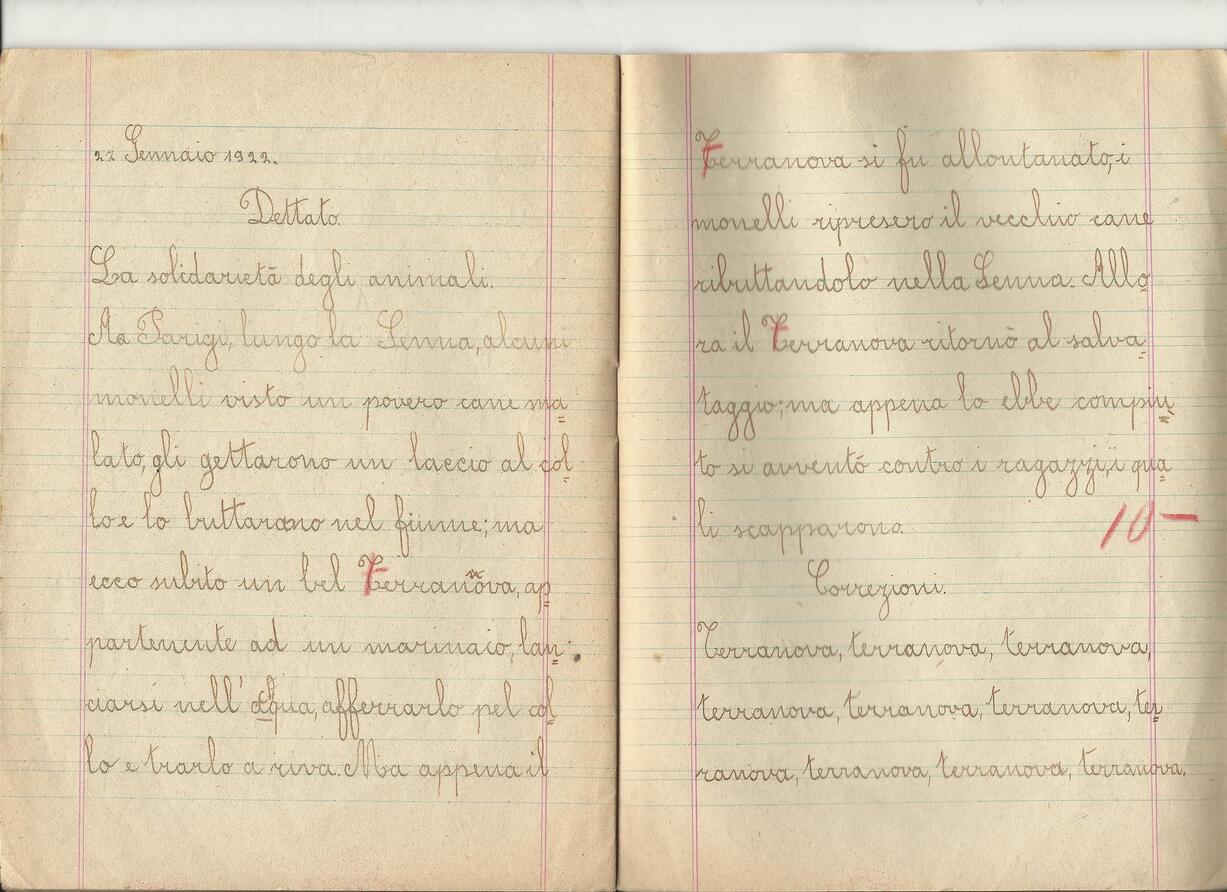 27 Gennaio 1922.
Dettato
La solidarietà degli animali.
A Parigi, lungo la Senna, alcuni
monelli visto un povero cane ma=
lato, gli gettarono un laccio al col=
lo e lo buttarono nel fiume; ma
ecco subito un bel Terranova, ap=
partenente ad un marinaio, lan=
ciarsi nell'acqua, afferrarlo pel col=
lo e trarlo a riva. Ma appena il
Terranova si fu allontanato, i
monelli ripresero il vecchio cane
ributtandolo nella Senna. Allo=
ra il Terranova ritornò al salva=
taggio; ma appena lo ebbe compiu=
to si avventò contro i ragazzi, i qua=
li scapparono.
10-
Correzioni.
Terranova, terranova, terranova,
terranova, terranova, terranova, ter=
ranova, terranova, terranova, terranova.